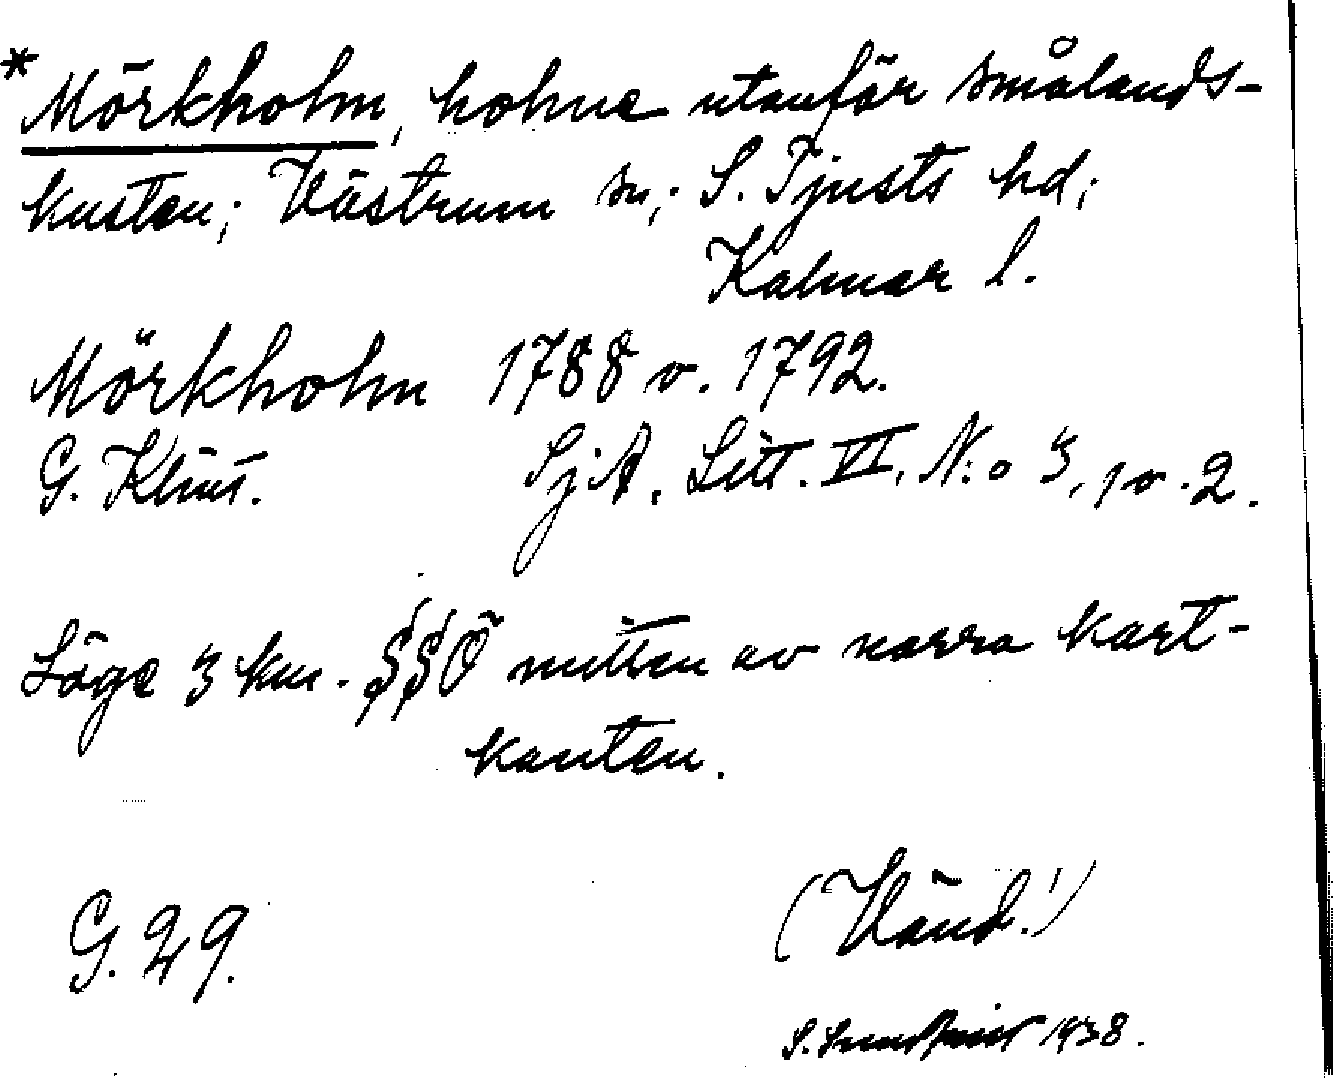 *Mörkholm, holme utanför smålands-
kusten; Västrum sn; S. Tjusts hd;
Kalmar l.
Mörkholm 1788 o. 1792.
G. Klint. SjA. Litt. VI. N:o 3, 1 o. 2.
Läge 3 km. SSÖ mitten av norra kart-
kanten.
G. 29.
(Vänd!)
S. 1938.